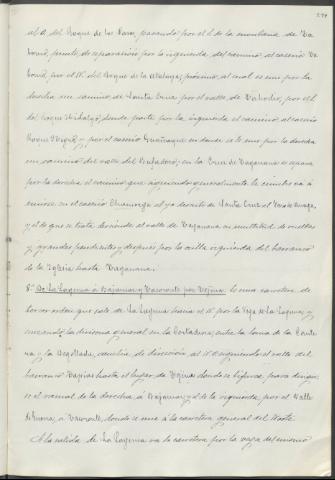 al O. del Roque de los Pasos, pasando por el E. de la montaña de Ta-
borno, punto de separación por la izquierda del camino al caserío Ta-
borno, por el N. del Roque de la próximo al cual se une por la
derecha un camino de Santa Cruz por el valle de Tahodio, por el E.
del Roque Hidalgo, donde parte por la izquierda el camino al caserío
Roque Negro, y por el caserío en donde se le une por la derecha
un camino del valle del Bufadero; en la Cruz de Taganana se separa
por la derecha el camino que siguiendo generalmente la cumbre va á
unirse en el caserío Chamorga al ya descrito de Santa Cruz al Faro de Anaga,
y el de que se trata desciende al valle de Taganana en multitud de vueltas
y grandes pendientes y después por la orilla izquierda del barranco
de la Iglesia hasta Taganana.
8º De La Laguna á Bajamar y Tacoronte por Tejina. Es una carretera de
tercer orden que sale de La Laguna hacia el N. por la Vega de La Laguna, y
cruzando la divisoria general en la Cortadura, entre la loma de la
y la Degollada, cambia de dirección al O. siguiendo el valle del
barranco Tapias hasta el lugar de Tejina donde se bifurca, para dirigir-
se el ramal de la derecha, á Bajamar y el de la izquierda, por el Valle
de Guerra, á Tacoronte, donde se une á la carretera general del Norte.
A la salida de La Laguna va la carretera por la vega del mismo